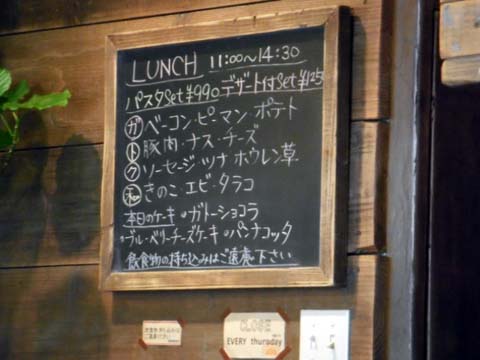 LUNCH 11:00~14:30
パスタSet ¥990 デザート付Set ¥125
ガ ベーコン・ピーマン ポテト
ト 豚肉・ナス・チーズ
ク ソーセージ・ツナ ホウレン草
和 きのこ エビ・タラコ
本日のケーキ・ガトーショコラ
・ブルーベリーチーズケーキ・パンナコッタ
飲食物の持ち込みはご遠慮下さい
CLOSE
EVERY thursday